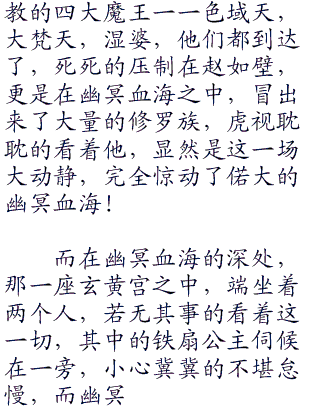 教的四大魔王一一色域天，
大梵天，湿婆，他们都到达
了，死死的压制在赵如壁，
更是在幽冥血海之中，冒出
来了大量的修罗族，虎视眈
眈的看着他，显然是这一场
大动静，完全惊动了偌大的
幽冥血海！
而在幽冥血海的深处，
那一座玄黄宫之中，端坐着
两个人，若无其事的看着这
一切，其中的铁扇公主伺候
在一旁，小心冀冀的不堪怠
慢，而幽冥